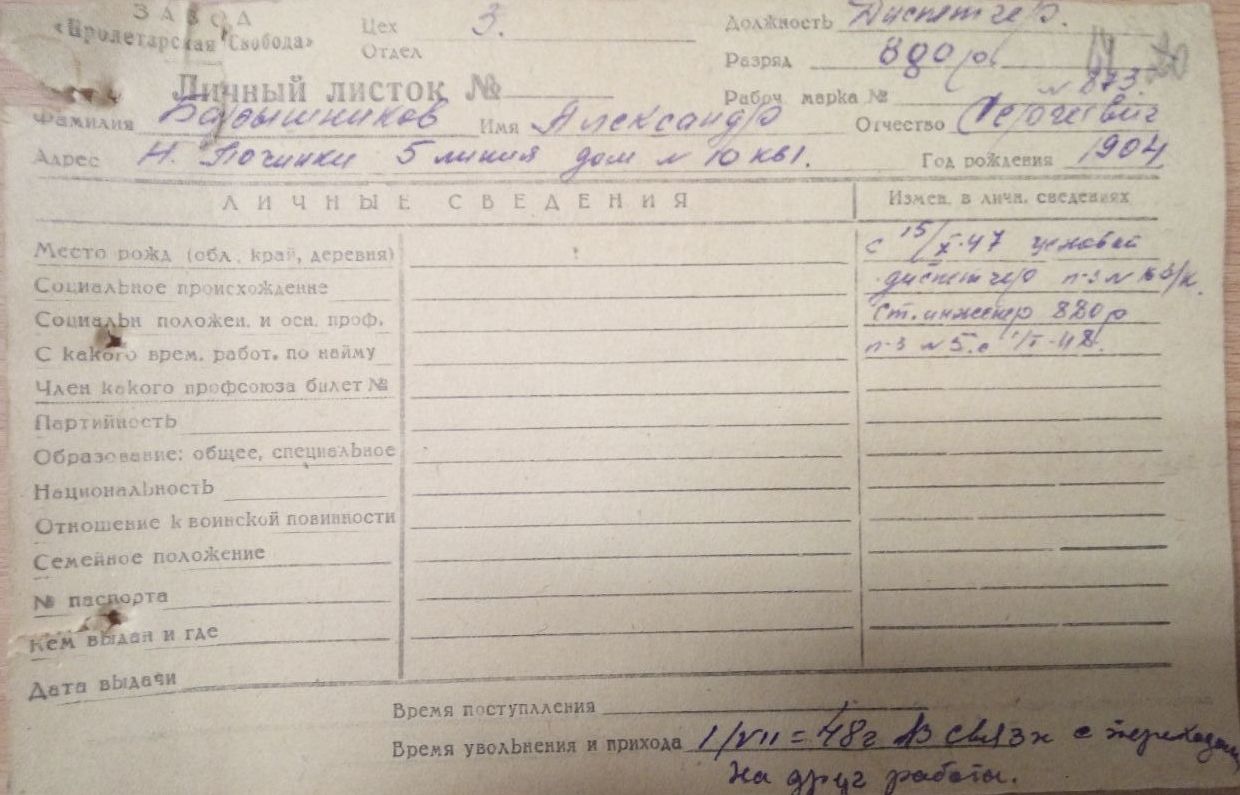 ЗАВОД
«Пролетарская Свобода»
Цех 3.
Отдел
Должность Диспетчер.
Разряд 880 р.
Личный листок №
Рабоч. марка № N 873.
Фамилия Барышников Имя Александр Отчество Сергеевич
Адрес Н. Починки 5 линия дом N 10 кв 1. Год рождения 1904
ЛИЧНЫЕ СВЕДЕНИЯ
Измен. в личн. сведениях
Место рожд (обл., край, деревня)
Социальное происхождение
Социальн положен. и осн. проф.
С какого врем. работ. по найму
Член какого профсоюза билет №
Партийность
Образование: общее, специальное
Национальность
Отношение к воинской повинности
Семейное положение
№ паспорта
Кем выдан и где
Дата выдачи
с 15/X-47 цеховой
диспетчер п-з N
Ст. инженер 880 р
п-з N 5. с 1/I-48.
Время поступления
Время увольнения и прихода 1/VII=48г В связи с переходом
На друг работы.